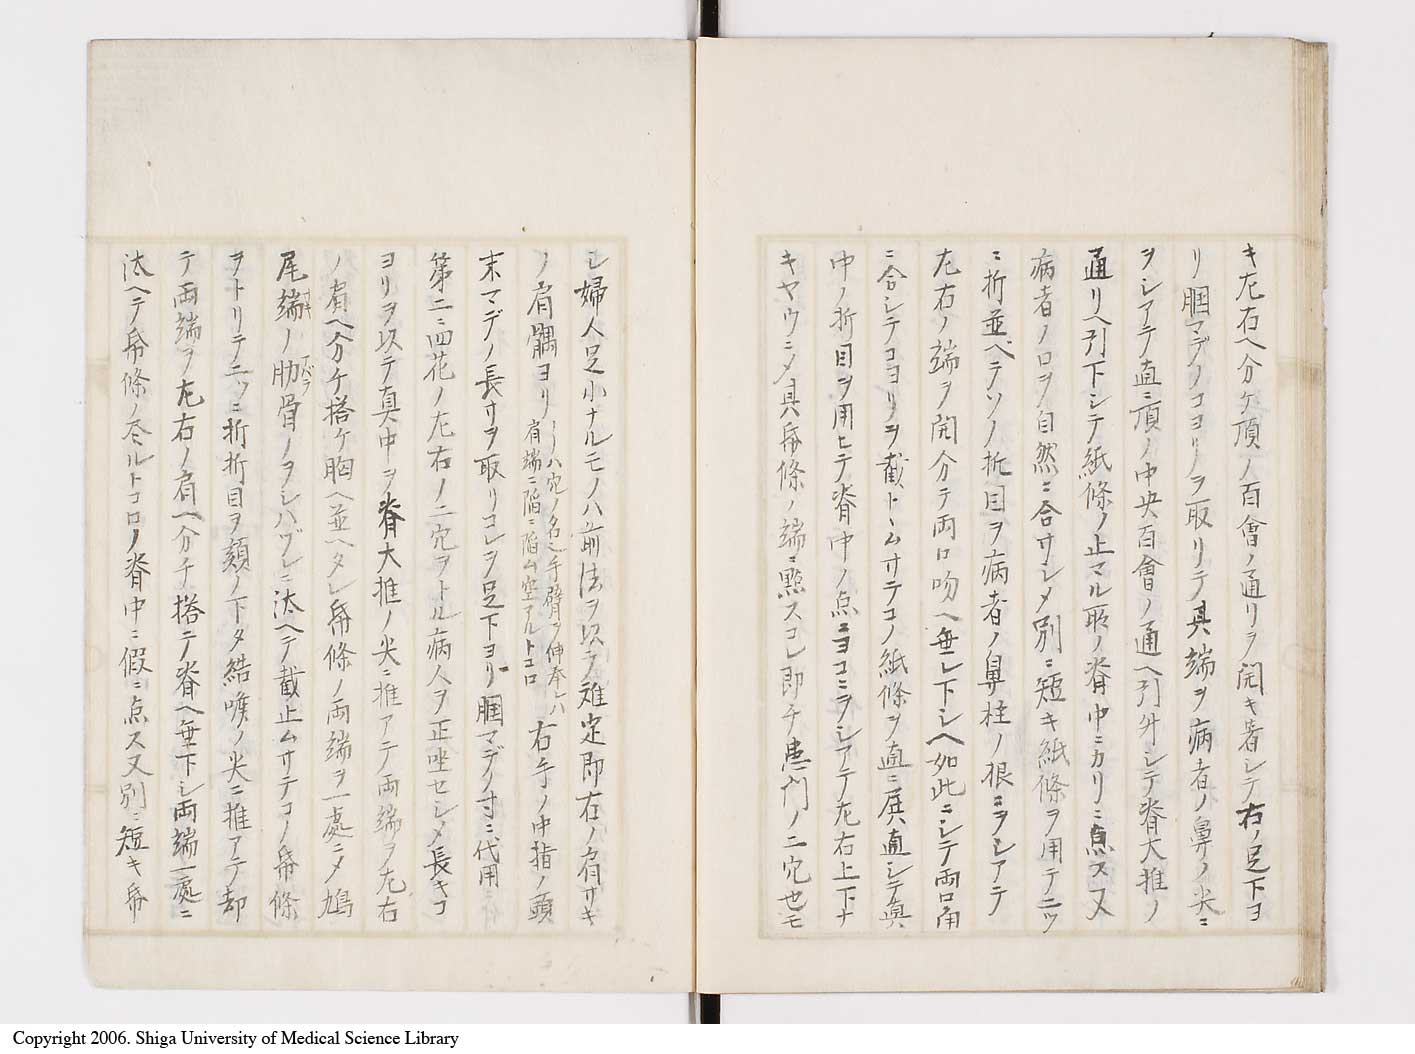 キ左右ヘ分ケ頂ノ百會ノ通リヲ開キ著シテ右ノ足下ヨ
リ膕マデノコヨリヲ取リテ其端ヲ病者ノ鼻ノ尖ニ
ヲシアテ直ニ頂ノ中央百會ノ通ヘ引舛シテ脊大推ノ
通リヘ引下シテ紙條ノ止マル所ノ脊中ニカリニ点ス又
病者ノ口ヲ自然ニ合サシメ別ニ短キ紙條ヲ用テ二ツ
ニ折並ベテソノ折目ヲ病者ノ鼻柱ノ根ニヲシアテ
左右ノ端ヲ開分テ両口吻ヘ垂レ下シヘ如此ニシテ両口角
ニ合シテコヨリヲ截トムサテコノ紙條ヲ直ニ展直シテ真
中ノ折目ヲ用ヒテ脊中ノ点ニヨコニヲシアテ左右上下ナ
キヤウニメ其帋條ノ端ニ點スコレ即チ患門ノ二穴也モ
シ婦人足小ナルモノハ前法ヲ以テ難定即右ノ肩サキ
ノ肩髃ヨリ
ーーハ穴ノ名也手臂ヲ伸奉レハ
肩端ニ陷ニ陷ム空アルトコロ
右手ノ中指ノ頭
末マデノ長サヲ取リコレヲ足下ヨリ膕マデノ寸ニ代用
第二ニ四花ノ左右ノ二穴ヲトル病人ヲ正坐セシメ長キコ
ヨリヲ以テ真中ヲ脊大推ノ尖ニ推アテ両端ヲ左右
ノ肩ヘ分チ搭ケ胸ヘ並ヘタレ帋條ノ両端ヲ一處ニメ鳩
尾端ノ肋骨ノヲシハヅレニ汰ヘテ截止ムサテコノ帋條
ヲトリテ二ツニ折折目ヲ頬ノ下タ結喉ノ尖ニ推アテ却
テ両端ヲ左右ノ肩ヘ分チ搭テ脊ヘ垂下シ両端一處ニ
汰ヘテ帋條ノ尽ルトコロノ脊中ニ假ニ点ス又別ニ短キ帋
Copyright 2006. Shiga University of Medical Science Library